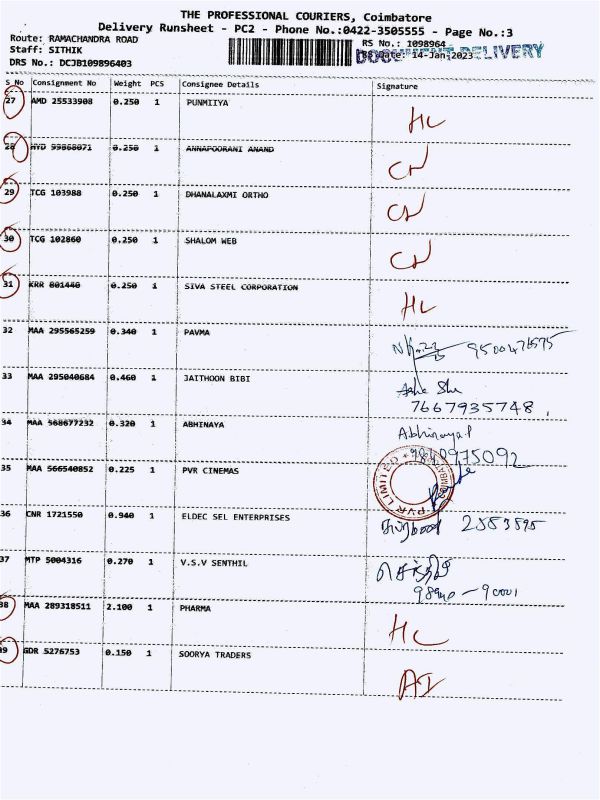 THE PROFESSIONAL COURIERS, Coimbatore
Delivery Runsheet - PC2 - Phone No.:0422-3505555 - Page No.:3
Route: RAMACHANDRA ROAD
Staff: SITHIK
DRS No.: DCJB109896403
RS No.: 1098964
Date: 14-Jan-2023
DOCUMENT DELIVERY
S_No Consignment No Weight PCS Consignee Details Signature
27 AMD 25533908 0.250 1 PUNMIIYA HC
28 HYD 99868071 0.250 1 ANNAPOORANI ANAND CN
29 TCG 103988 0.250 1 DHANALAXMI ORTHO CN
30 TCG 102860 0.250 1 SHALOM WEB CN
31 KRR 801440 0.250 1 SIVA STEEL CORPORATION HC
32 MAA 295565259 0.340 1 PAVMA
33 MAA 295040684 0.460 1 JAITHOON BIBI
7667935748
34 MAA 568677232 0.320 1 ABHINAYA Abhinaya P
9840975092
35 MAA 566540852 0.225 1 PVR CINEMAS
PVR LIMITED
36 CNR 1721550 0.940 1 ELDEC SEL ENTERPRISES
37 MTP 5004316 0.270 1 V.S.V SENTHIL
38 MAA 289318511 2.100 1 PHARMA HC
39 GDR 5276753 0.150 1 SOORYA TRADERS AI